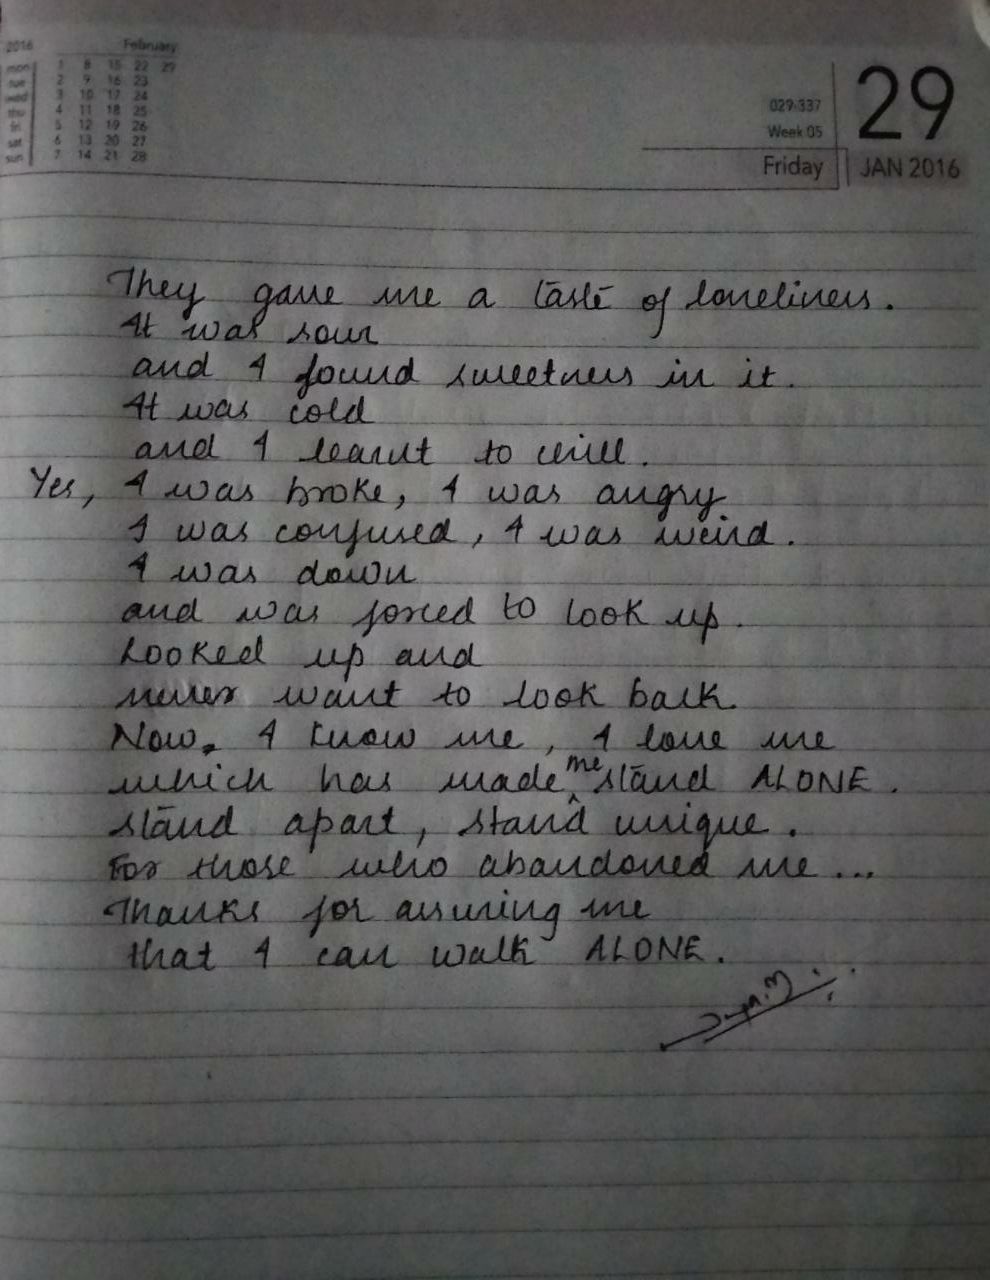 2016 February
mon 1 8 15 22 29
tue 2 9 16 23
wed 3 10 17 24
thu 4 11 18 25
fri 5 12 19 26
sat 6 13 20 27
sun 7 14 21 28
29
029-337
Week 05
Friday JAN 2016
They gave me a taste of loneliness.
It was sour
and I found sweetness in it.
It was cold
and I learnt to chill.
Yes, I was broke, I was angry
I was confused, I was weird.
I was down
and was forced to look up.
Looked up and
never want to look back.
Now, I know me, I love me
which has made me stand ALONE.
stand apart, stand unique.
For those who abandoned me...
Thanks for assuring me
that I can walk ALONE.